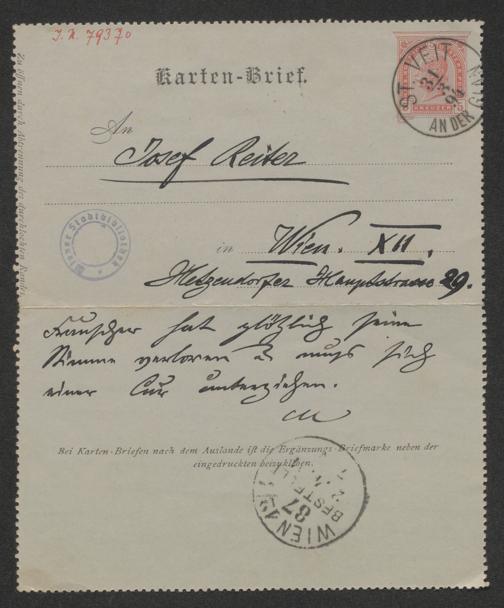 I.N. 79370
Karten-Brief.
KREUZER
ST. VEIT
31
AN DER
An
Josef Reiter
Wiener Stadtbibliothek
in Wien. XII.
Hetzendorfer Hauptstrasse 29.
hat plötzlich seine
Stimme verloren & muss sich
einer Cur unterziehen.
Bei Karten-Briefen nach dem Auslande ist die Ergänzungs-Briefmarke neben der
eingedruckten beizukleben.
WIEN
87
BESTELLT
Zu öffnen durch Abtrennung der durchlochten Ränder.